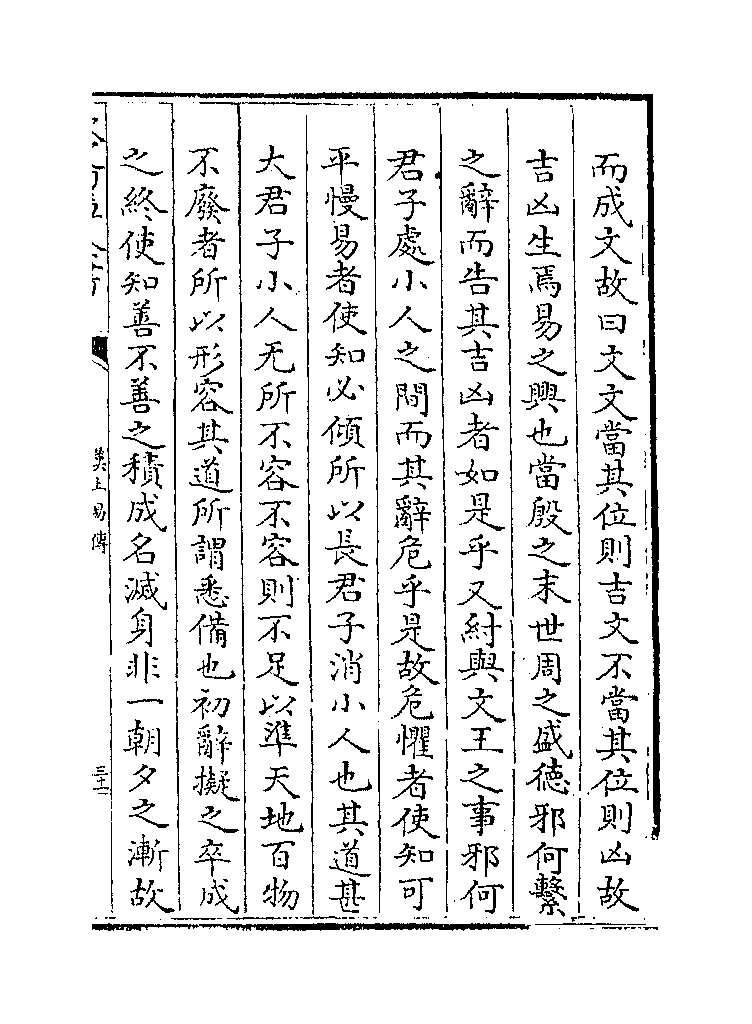 而成文故曰文文當其位則吉文不當其位則凶故
吉凶生焉易之興也當殷之末世周之盛德邪何繫
之辭而告其吉凶者如是乎又紂與文王之事邪何
君子處小人之間而其辭危乎是故危懼者使知可
平慢易者使知必傾所以長君子消小人也其道甚
大君子小人无所不容不容則不足以準天地百物
不廢者所以形容其道所謂悉備也初辭擬之卒成
之終使知善不善之積成名滅身非一朝夕之漸故
易傳